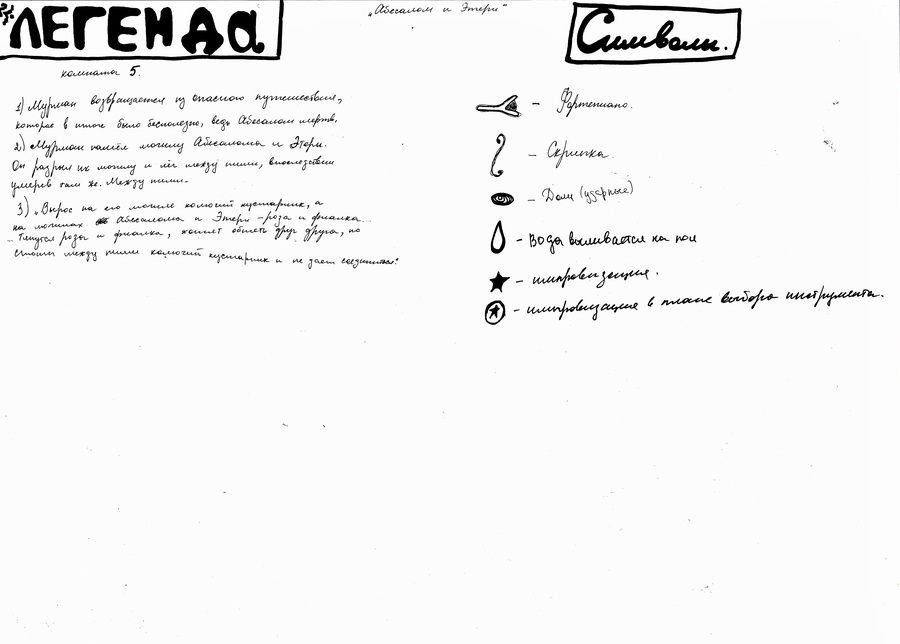 ЛЕГЕНДА
„Абесалом и Этери“
Символы.
комната 5.
1) Мурман возвращается из опасного путешествия,
которое в итоге было бесполезно, ведь Абесалом мертв.
2) Мурман нашёл могилу Абесалома и Этери.
Он разрыл их могилу и лёг между ними, впоследствии
умерев там же. Между ними.
3) „Вырос на его могиле колючий кустарник, а
на могилах Абесалома и Этери - роза и фиалка...
- Тянутся роза и фиалка, хотят обнять друг друга, но
стоит между ними колючий кустарник и не дает соединиться“
- Фортепиано.
- Скрипка
- Доли (ударные)
- Вода выливается на пол
- импровизация.
- импровизация в плане выбора инструмента.